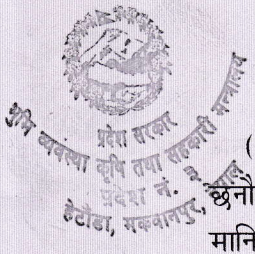 प्रदेश सरकार
भूमि व्यवस्था कृषि तथा सहकारी मन्त्रालय
प्रदेश नं. ३ नेपाल
हेटौडा, मकवानपुर,
(
छनौ
मानि